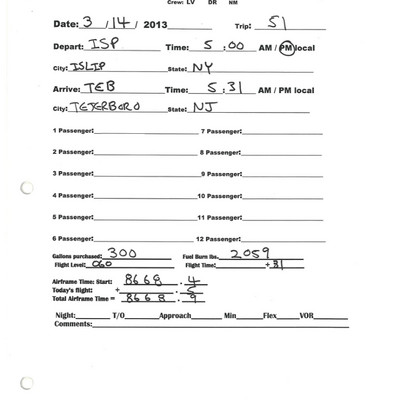 Crew: LV DR NM
Date: 3 / 14 / 2013 Trip: 51
Depart: ISP Time: 5 : 00 AM / PM local
City: ISLIP State: NY
Arrive: TEB Time: 5 : 31 AM / PM local
City: TETERBORO State: NJ
1 Passenger: 7 Passenger:
2 Passenger: 8 Passenger:
3 Passenger: 9 Passenger:
4 Passenger: 10 Passenger:
5 Passenger: 11 Passenger:
6 Passenger: 12 Passenger:
Gallons purchased: 300 Fuel Burn lbs. 2059
Flight Level: 060 Flight Time: + 31
Airframe Time: Start: 8668 . 4
Today's flight: + . 5
Total Airframe Time = 8668 . 9
Night: T/O Approach Min Flex VOR
Comments: